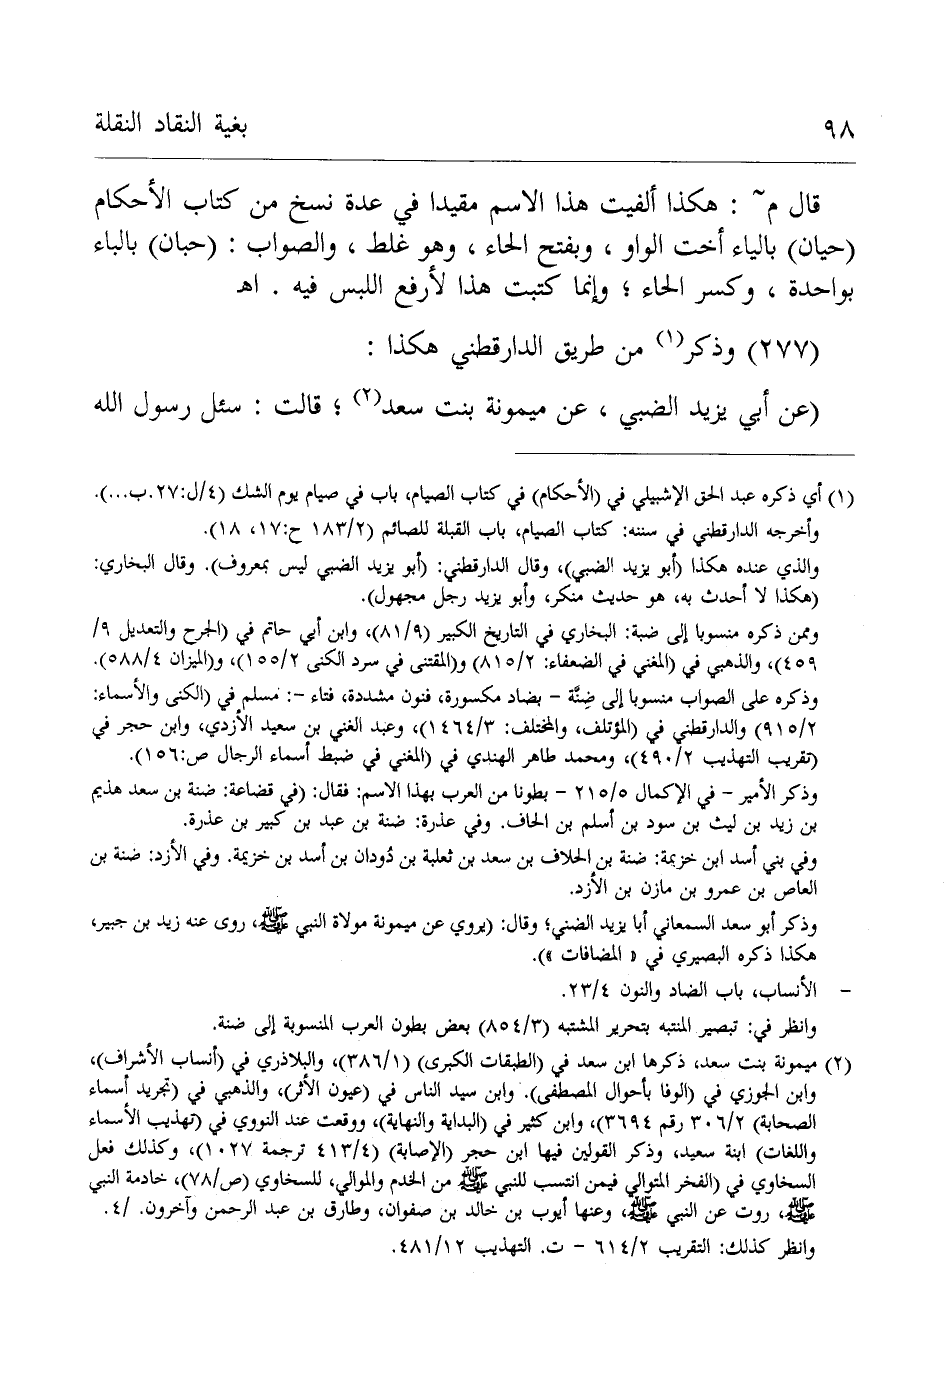 ٩٨
بغية النقاد النقلة
قال م~ : هكذا ألفيت هذا الاسم مقيدا في عدة نسخ من كتاب الأحكام
(حيان) بالياء أخت الواو ، وبفتح الحاء ، وهو غلط ، والصواب : (حبان) بالباء
بواحدة ، وكسر الحاء ؛ وإنما كتبت هذا لأرفع اللبس فيه . اهـ
(٢٧٧) وذكر(١) من طريق الدارقطني هكذا :
(عن أبي يزيد الضبي ، عن ميمونة بنت سعد(٢) ؛ قالت : سئل رسول الله
(١) أي ذكره عبد الحق الإشبيلي في (الأحكام) في كتاب الصيام، باب في صيام يوم الشك (٤/ل:٢٧.ب...).
وأخرجه الدارقطني في سننه: كتاب الصيام، باب القبلة للصائم (١٨٣/٢ ح:١٧، ١٨).
والذي عنده هكذا (أبو يزيد الضبي)، وقال الدارقطني: (أبو يزيد الضبي ليس بمعروف). وقال البخاري:
(هكذا لا أحدث به، هو حديث منكر، وأبو يزيد رجل مجهول).
وممن ذكره منسوبا إلى ضبة: البخاري في التاريخ الكبير (٨١/٩)، وابن أبي حاتم في (الجرح والتعديل ٩/
٤٥٩)، والذهبي في (المغني في الضعفاء: ٨١٥/٢) و(المقتنى في سرد الكنى ١٥٥/٢)، و(الميزان ٥٨٨/٤).
وذكره على الصواب منسوبا إلى ضِنَّة - بضاد مكسورة، فنون مشددة، فتاء -: مسلم في (الكنى والأسماء:
٩١٥/٢) والدارقطني في (المؤتلف، والمختلف: ١٤٦٤/٣)، وعبد الغني بن سعيد الأزدي، وابن حجر في
(تقريب التهذيب ٤٩٠/٢)، ومحمد طاهر الهندي في (المغني في ضبط أسماء الرجال ص:١٥٦).
وذكر الأمير - في الإكمال ٢١٥/٥ - بطونا من العرب بهذا الاسم: فقال: (في قضاعة: ضنة بن سعد هذيم
بن زيد بن ليث بن سود بن أسلم بن الحاف. وفي عذرة: ضنة بن عبد بن كبير بن عذرة.
وفي بني أسد ابن خزيمة: ضنة بن الحلاف بن سعد بن ثعلبة بن دُودان بن أسد بن خزيمة. وفي الأزد: ضنة بن
العاص بن عمرو بن مازن بن الأزد.
وذكر أبو سعد السمعاني أبا يزيد الضني؛ وقال: (يروي عن ميمونة مولاة النبي ﷺ، روى عنه زيد بن جبير،
هكذا ذكره البصيري في « المضافات »).
- الأنساب، باب الضاد والنون ٢٣/٤.
وانظر في: تبصير المنتبه بتحرير المشتبه (٨٥٤/٣) بعض بطون العرب المنسوبة إلى ضنة.
(٢) ميمونة بنت سعد، ذكرها ابن سعد في (الطبقات الكبرى) (٣٨٦/١)، والبلاذري في (أنساب الأشراف)،
وابن الجوزي في (الوفا بأحوال المصطفى). وابن سيد الناس في (عيون الأثر)، والذهبي في (تجريد أسماء
الصحابة) ٣٠٦/٢ رقم ٣٦٩٤)، وابن كثير في (البداية والنهاية)، ووقعت عند النووي في (تهذيب الأسماء
واللغات) ابنة سعيد، وذكر القولين فيها ابن حجر (الإصابة) (٤١٣/٤ ترجمة ١٠٢٧)، وكذلك فعل
السخاوي في (الفخر المتوالي فيمن انتسب للنبي ﷺ من الخدم والموالي، للسخاوي (ص/٧٨)، خادمة النبي
ﷺ، روت عن النبي ﷺ، وعنها أيوب بن خالد بن صفوان، وطارق بن عبد الرحمن وآخرون. /٤.
وانظر كذلك: التقريب ٦١٤/٢ - ت. التهذيب ٤٨١/١٢.